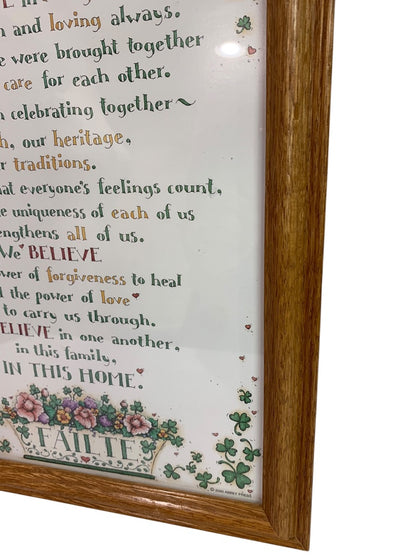 and loving always.
were brought together
care for each other.
celebrating together~
our heritage,
traditions.
everyone's feelings count,
uniqueness of each of us
engthens all of us.
We BELIEVE
ower of forgiveness to heal
the power of love
to carry us through.
ELIEVE in one another,
in this family,
IN THIS HOME.
FÁILTE